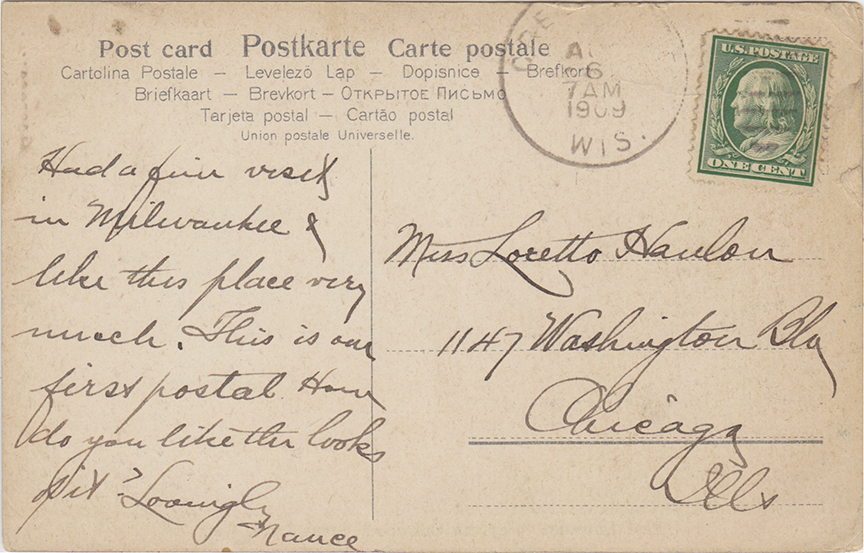 Post card Postkarte Carte postale
Cartolina Postale – Levelező Lap – Dopisnice – Brefkort
Briefkaart – Brevkort – Открытое Письмо
Tarjeta postal – Cartão postal
Union postale Universelle.
AU
6
7AM
1909
WIS.
U.S. POSTAGE
ONE CENT
Had a fine visit
in Milwaukee &
like this place very
much. This is our
first postal How
do you like the looks
of it? Lovingly
Nance
Miss Loretto Hanlon
1147 Washington Blv
Chicago
Ills